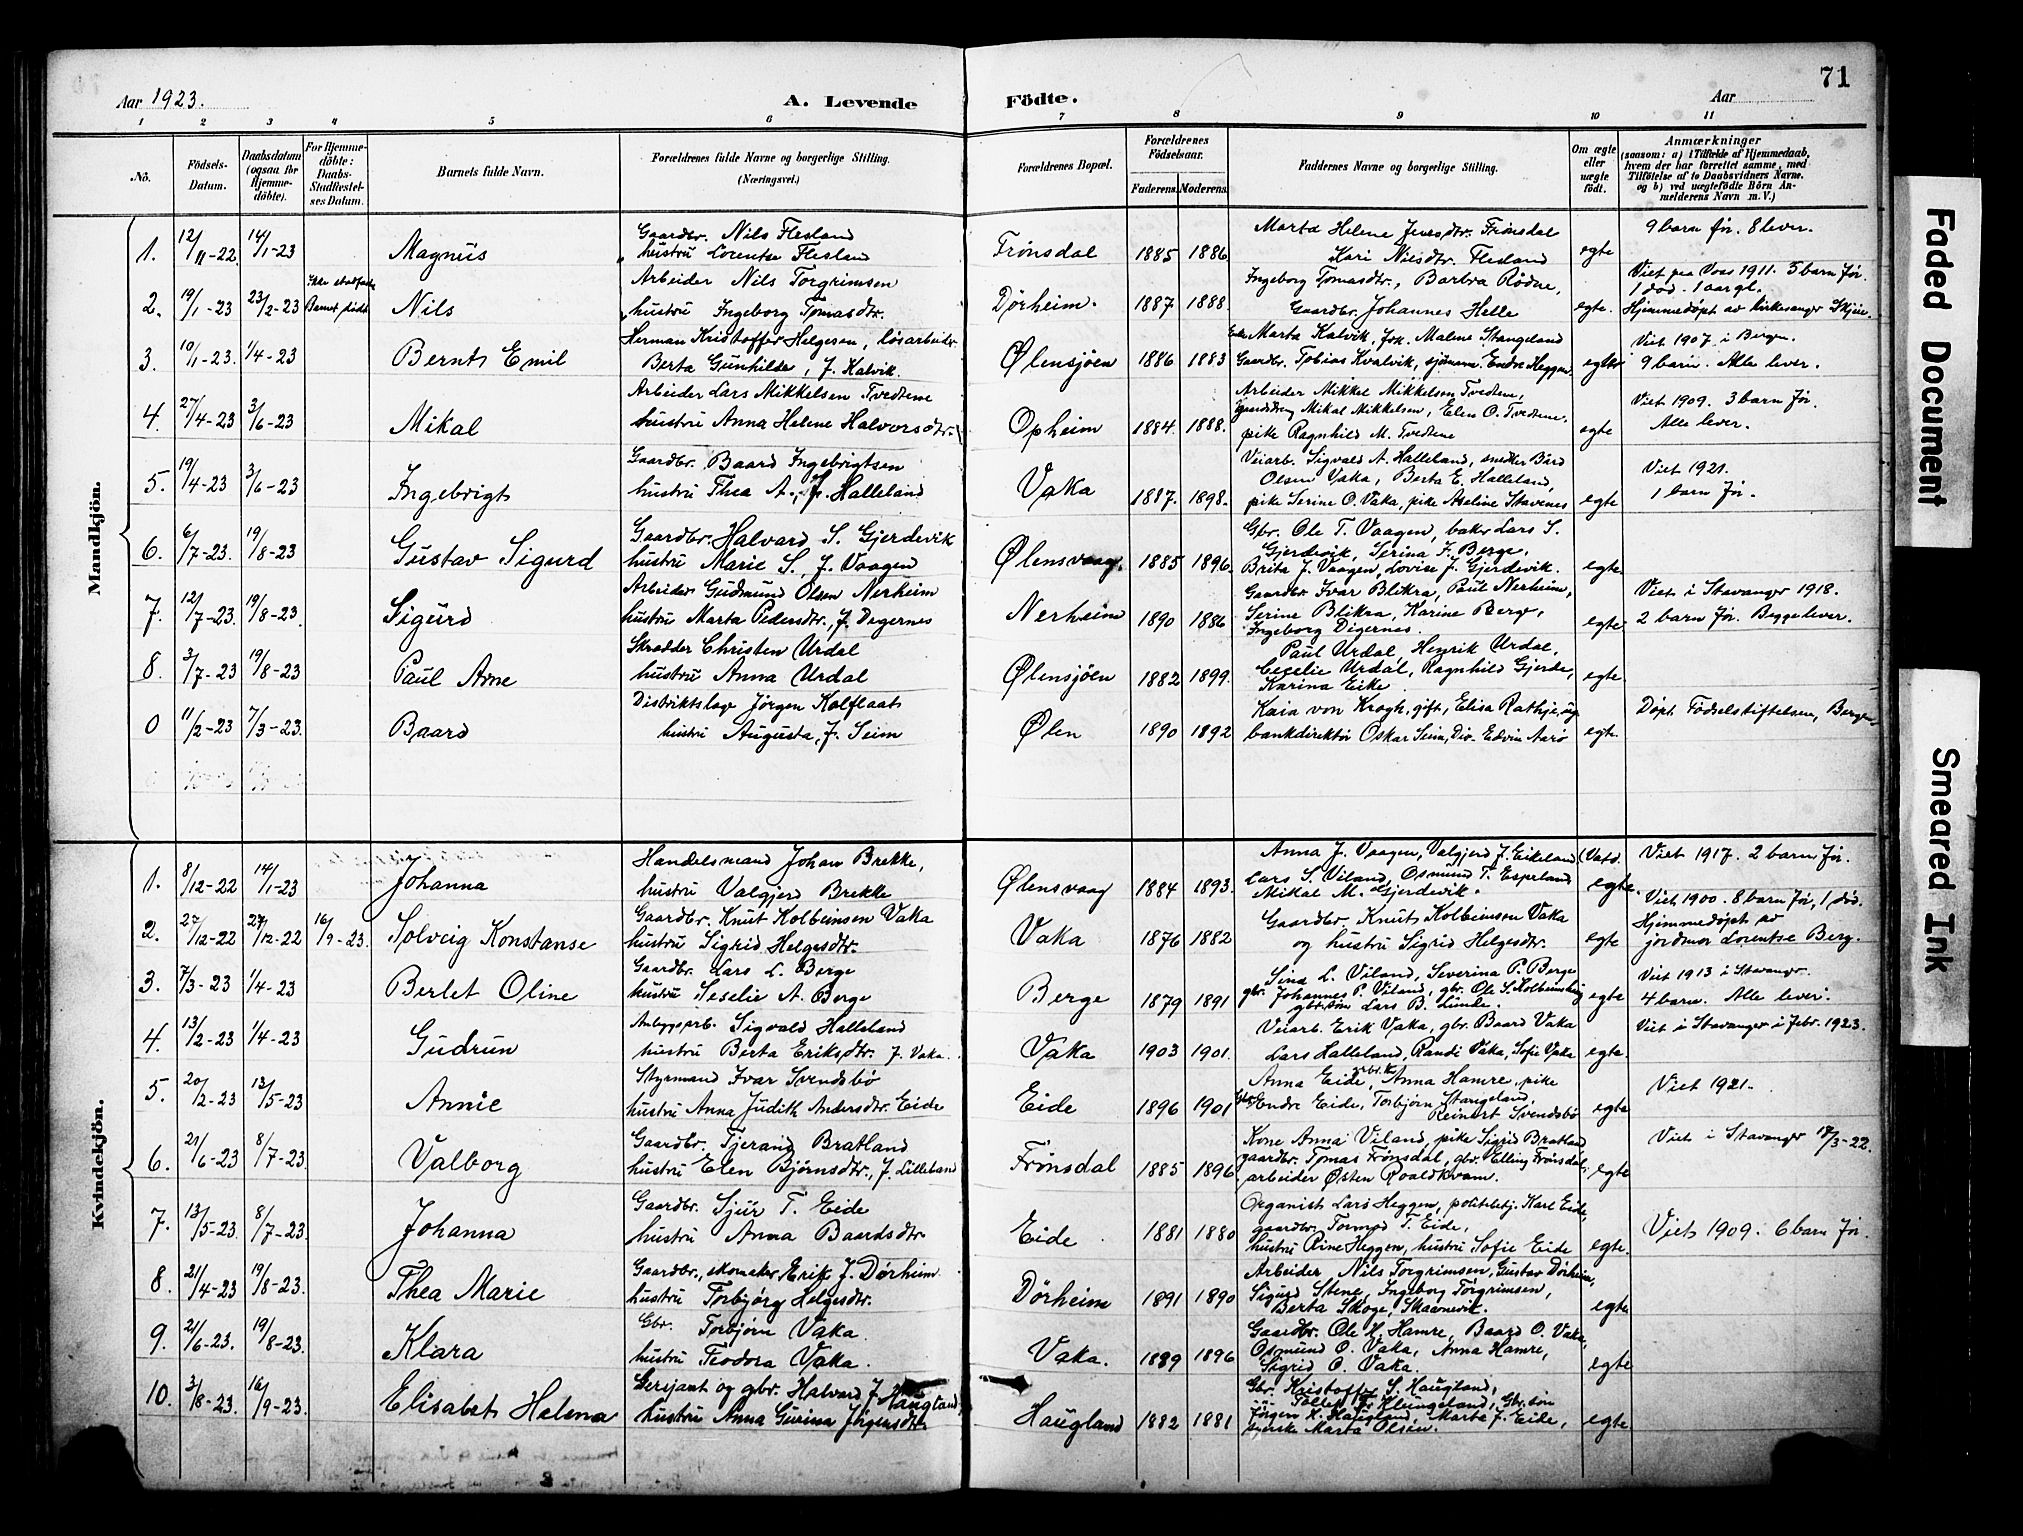 71
Aar 1923.
A. Levende Födte.
Aar
1 2 3 4 5 6 7 8 9 10 11
No.
Födsels-Datum.
Daabsdatum (ogsaa for Hjemme-döbte).
For Hjemme-döbte: Daabs-Stadfæstel-ses Datum.
Barnets fulde Navn.
Forældrenes fulde Navne og borgerlige Stilling.
(Næringsvei.)
Forældrenes Bopæl.
Forældrenes Födselsaar.
Faderens. Moderens.
Faddernes Navne og borgerlige Stilling.
Om ægte eller uægte födt.
Anmærkninger
(saasom: a) i Tilfælde af Hjemmedaab,
hvem der har forrettet samme, med
Tilföielse af to Daabsvidners Navne.
og b) ved uægtefödte Börn An-
melderens Navn m.V.)
Mandkjön.
1. 12/11-22. 14/1-23 Magnus
Gaardbr. Nils Flesland
hustru Lorentse Flesland
Frönsdal 1885 1886
Marta Helene Jensdtr. Frönsdal
Kari Nilsdtr. Flesland
egte
9 barn før. 8 lever.
2. 19/1-23 23/2-23 Nils
Arbeider Nils Torgrimsen
hustru Ingeborg Tomasdtr.
Dørheim. 1887 1888
Ingeborg Tomasdtr., Barbra Rødne,
Gaardbr. Johannes Helle
egte.
Viet paa Voss 1911. 5 barn før.
1 död. 1 aar gl.
Hjemmedøpt av kirkesanger Skjeie.
3. 10/1-23. 1/4-23 Bernt Emil
Herman Kristoffer Helgesen, løsarbeider
Berta Gunhilde, f. Kalvik.
Ølensjøen 1886 1883
Marta Kalvik, frk. Malene Stangeland
Gaardbr. Tobias Kvalvik, sjømann Endre Heggen
egte
Viet 1907 i Bergen.
9 barn. Alle lever.
4. 27/4-23 3/6-23 Mikal
Arbeider Lars Mikkelsen Tvedtene
hustru Anna Helene Halvorsdtr.
Opheim 1884. 1888.
Arbeider Mikkel Mikkelsen Tvedtene,
Mikal Mikkelsen, Elen O. Tvedtene.
pike Ragnhild M. Tvedtene
egte
Viet 1909. 3 barn før.
Alle lever.
5. 19/4-23 3/6-23 Ingebrigt
Gaardbr. Baard Ingebrigtsen
hustru Thea A., f. Halleland
Vaka 1887. 1898.
Veiarb. Sigvald A. Halleland, snedker Bård
Olsen Vaka, Berta E. Halleland,
pike Serine O. Vaka, pike Aseline Stavenes
egte
Viet 1921.
1 barn før.
6. 6/7-23. 19/8-23 Gustav Sigurd
Gaardbr. Halvard S. Gjerdevik
hustru Marie S., f. Vaagen
Ølensvaag. 1885 1896.
Gbr. Ole T. Vaagen, baker Lars S.
Gjerdevik, Serina F. Berge,
Brita J. Vaagen, Lovise J. Gjerdevik.
egte
7. 12/7-23. 19/8-23. Sigurd
Arbeider Gudmund Olsen Nerheim
hustru Marta Pedersdtr., f. Degernes
Nerheim 1890 1886
Gaardbr. Ivar Blikra, Paul Nerheim,
Serine Blikra, Karine Berge,
Ingeborg Digernes.
egte
Viet i Stavanger 1918.
2 barn før. Begge lever.
8. 3/7-23 19/8-23 Paul Arne
Skrædder Christen Urdal
hustru Anna Urdal
Ølensjøen 1882 1899.
Paul Urdal, Henrik Urdal,
Cecelie Urdal, Ragnhild Gjerde,
Karina Eike.
egte.
0 11/2-23 7/3-23. Baard
Distriktslæge Jörgen Kolflaat
hustru Augusta, f. Seim
Ølen 1890 1892
Kaia von Krogh, gift, Elisa Rathje, ug.
bankdirektör Oskar Seim, Div. Edvin Aarö
egte.
Döpt Födselstiftelsen, Bergen
Kvindekjön.
1. 8/12-22 14/1-23 Johanna
Handelsmand Johan Brekke,
hustru Valgjerd Brekke
Ølensvaag 1884 1893.
Anna J. Vaagen, Valgjerd J. Eikeland (Vats).
Lars S. Viland, Osmund T. Espeland
Mikal M. Gjerdevik.
egte.
Viet 1917. 2 barn før.
2. 27/12-22 27/12-22 16/9-23. Solveig Konstanse
Gaardbr. Knut Kolbeinsen Vaka
hustru Sigrid Helgesdtr.
Vaka 1876 1882
Gaardbr. Knut Kolbeinsen Vaka
og hustru Sigrid Helgesdtr.
egte
Viet 1900. 8 barn før, 1 død.
Hjemmedøpt av
jordmor Lorentse Berg.
3. 7/3-23 1/4-23 Berlet Oline
Gaardbr. Lars L. Berge
hustru Seselie A. Berge
Berge 1879 1891
Sina L. Viland, Severina P. Berge
gbr. Johannes P. Viland, gbr. Ole S. Kolbeinsvig
gbr. søn Lars B. Lunde.
egte
Viet 1913 i Stavanger.
4 barn. Alle lever.
4. 13/2-23 1/4-23 Gudrun
Anlægsarb. Sigvald Halleland
hustru Berta Eriksdtr. f. Vaka.
Vaka 1903 1901.
Veiarb. Erik Vaka, gbr. Baard Vaka
Lars Halleland, Randi Vaka, Sofie Vaka
egte.
Viet i Stavanger i febr. 1923.
5. 20/2-23 13/5-23 Annie
Styrmand Ivar Svendsbö
hustru Anna Judith Andersdtr. Eide
Eide 1896 1901
Anna Eide, Anna Hamre, pike
Endre Eide, Torbjørn Stangeland,
Reinert Svendsbö
egte
Viet 1921.
6. 21/6-23 8/7-23. Valborg
Gaardbr. Tjerand Bratland
hustru Elen Bjørnsdtr., f. Lilleland
Frönsdal 1885 1896
Kone Anna Viland, pike Sigrid Bratland
gaardbr. Tomas Frönsdal, gbr. Elling Frönsdal,
arbeider Østen Roaldkvam.
egte
Viet i Stavanger 17/3-22.
7. 13/5-23. 8/7-23. Johanna
Gaardbr. Sjur T. Eide
hustru Anna Baardsdtr
Eide 1881 1880
Organist Lars Heggen, politibetj. Karl Eide,
gaardbr. Tormod T. Eide,
hustru Rine Heggen, hustru Sofie Eide
egte.
Viet 1909. 6 barn før.
8. 21/4-23 19/8-23. Thea Marie
Gaardbr., skomaker Erik J. Dørheim
hustru Torbjørg Helgesdtr.
Dørheim 1891 1890
Arbeider Nils Torgrimsen, Gustav Dørheim,
Sigurd Stene, Ingeborg Torgrimsen,
Berta Skoge, Skaanevik.
egte
9. 21/6-23. 19/8-23. Klara
Gbr. Torbjørn Vaka.
hustru Teodora Vaka.
Vaka. 1889 1896
Gaardbr. Ole H. Hamre, Baard O. Vaka,
Osmund O. Vaka, Anna Hamre,
Sigrid O. Vaka.
egte
10. 3/8-23. 16/9-23. Elisabet Helena
Sersjant og gbr. Halvard J. Haugland
hustru Anna Gurina Jörgensdtr
Haugland 1882 1881
Gbr. Kristoffer S. Haugland,
Tollef Klungeland, Gbr. søn
Jörgen H. Haugland, Marta J. Eide,
Marta Olsen.
egte
Faded Document
Smeared Ink